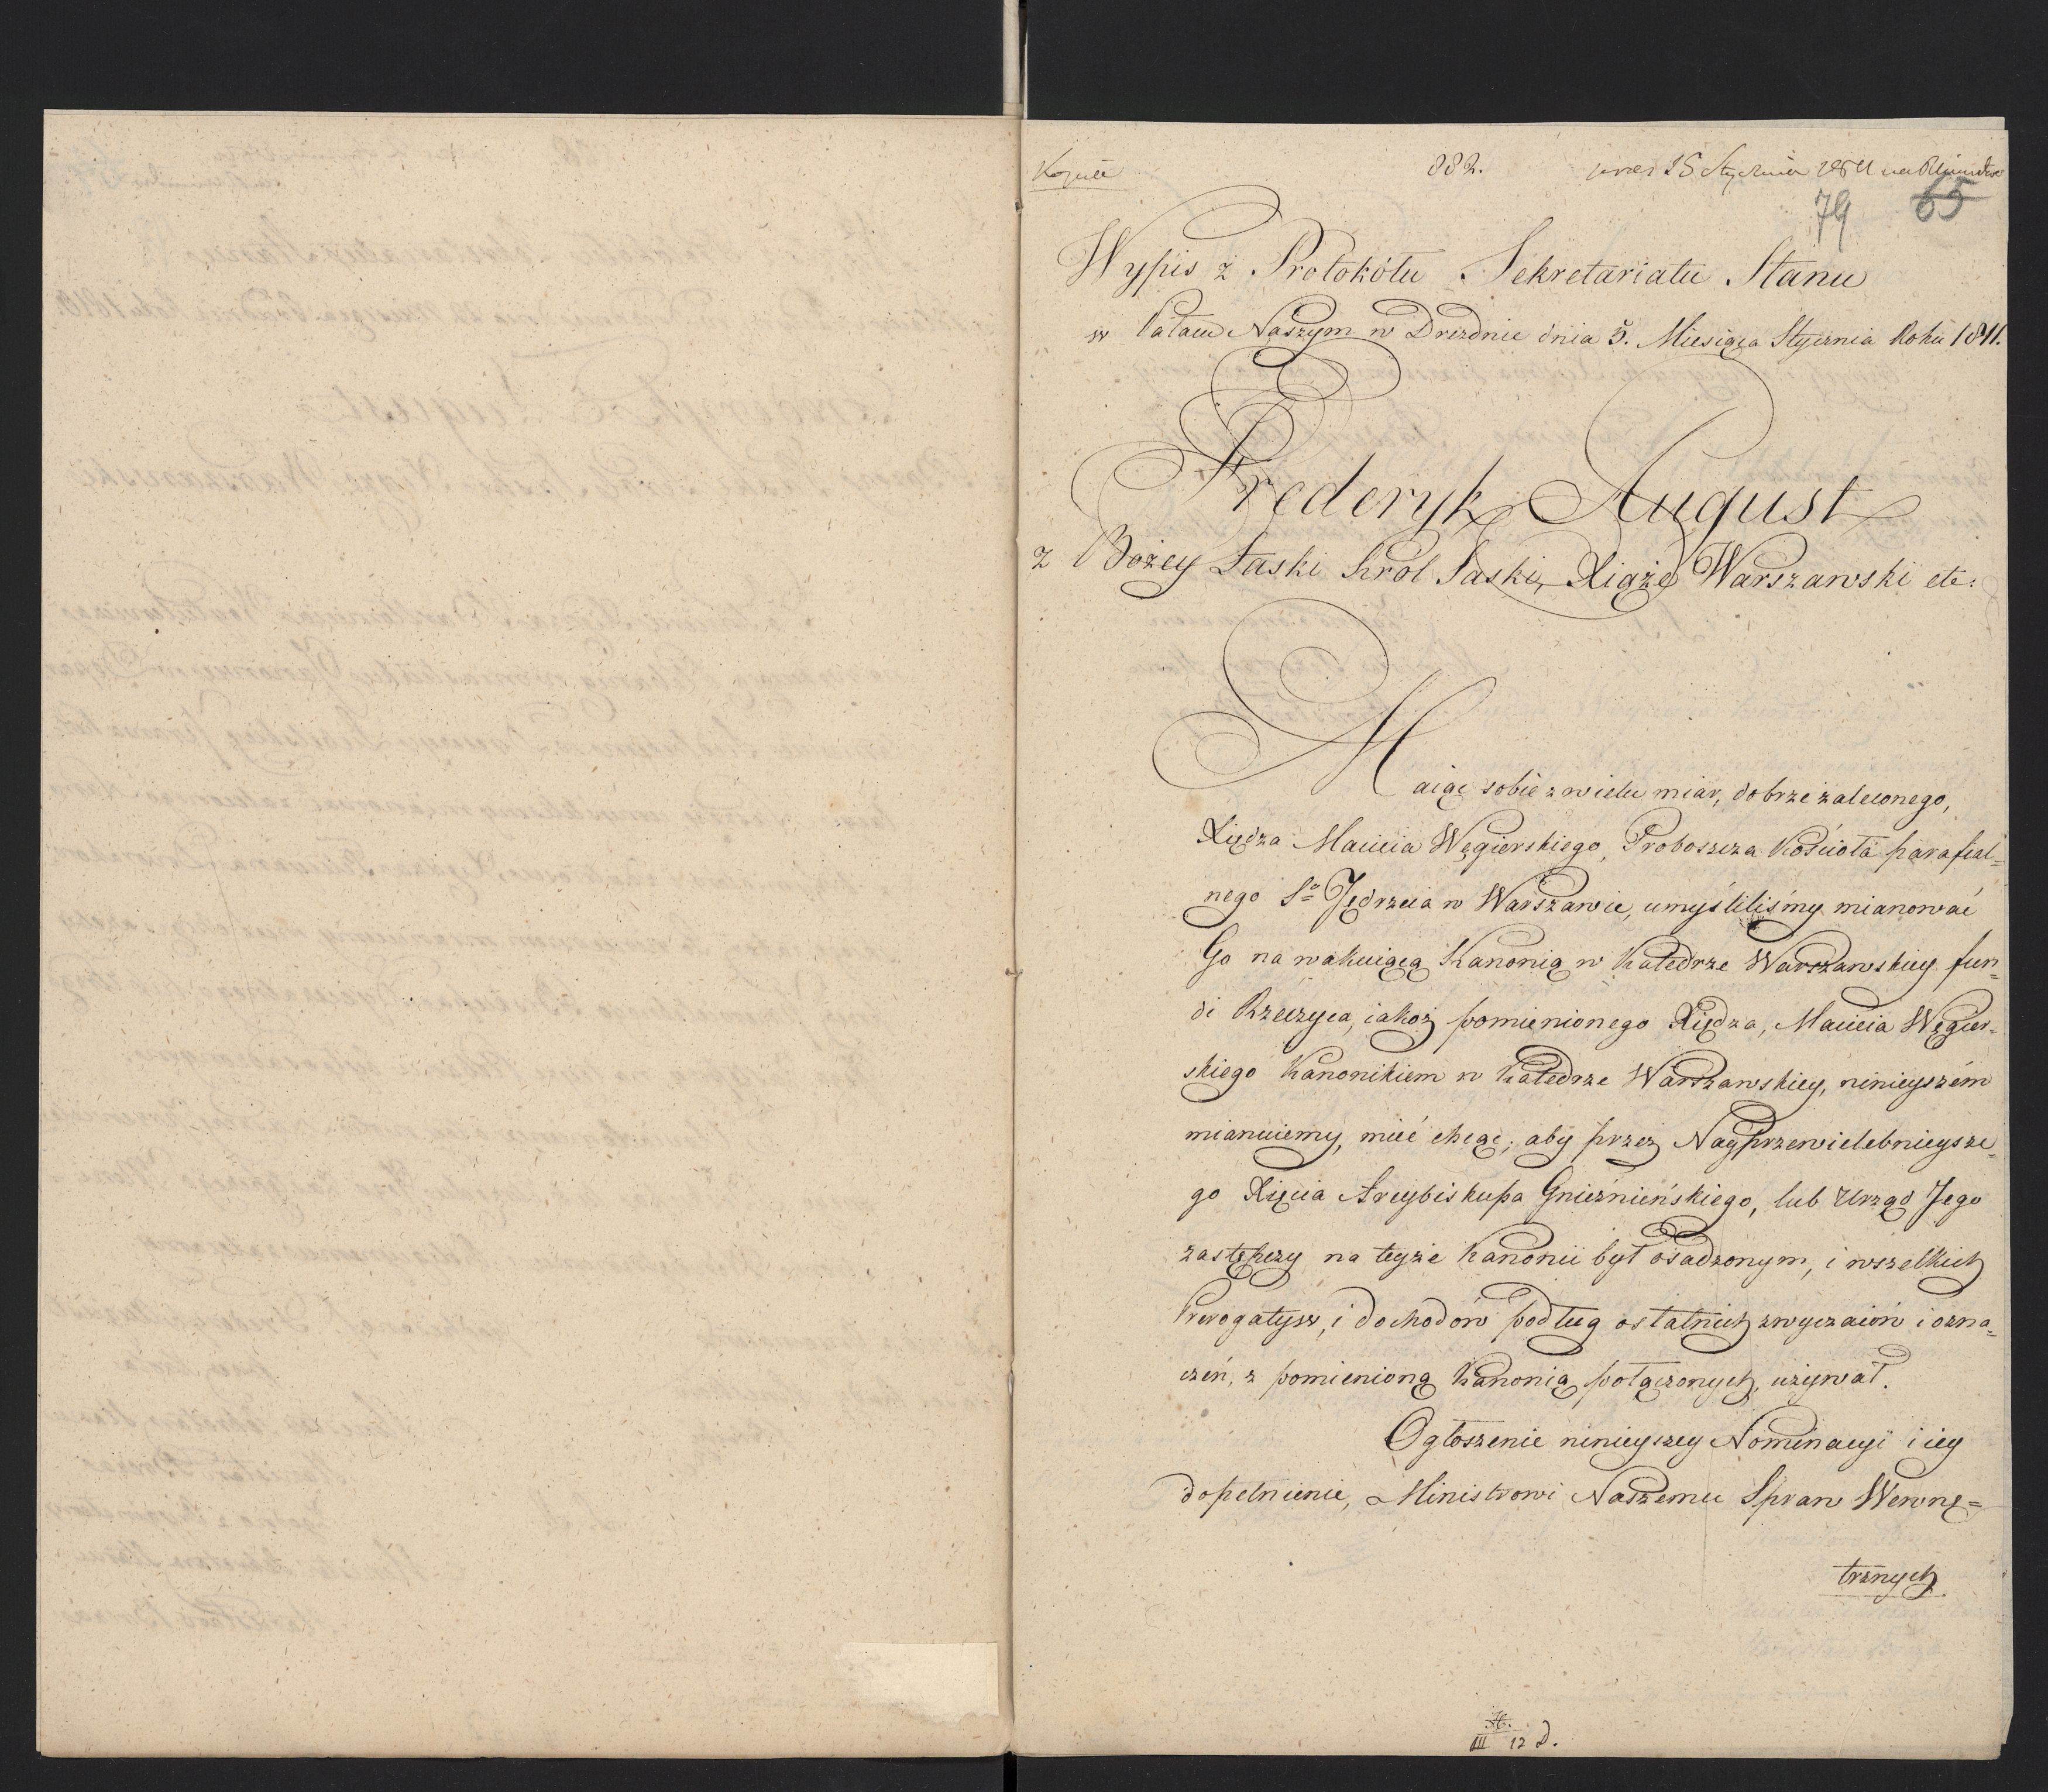 Kopia
882.
pres 15 Stycznia 1811
79 65
Wypis z Protokółu Sekretariatu Stanu
w Pałacu Naszym w Dreznie dnia 5. Miesiąca Stycznia Roku 1811.
Frederyk August
z Bożey Łaski Król Saski, Xiążę Warszawski etc:
Maiąc sobie z wielu miar, dobrze zaleconego,
Xiędza Macieia Węgierskiego, Proboszcza Kościoła parafial=
nego So Jędrzeia w Warszawie, umyśliliśmy mianować
Go na wakuiącą Kanonią w Katedrze Warszawskiey fun=
di Rzeczyca, iakoż pomienionego Xiędza, Macieia Węgier=
skiego Kanonikiem w Katedrze Warszawskiey, ninieyszém
mianuiemy, mieć chcąc; aby przez Nayprzewielebnieysze=
go Xięcia Arcybiskupa Gnieźnieńskiego, lub Urząd Jego
zastępczy na teyże Kanonii był osadzonym, i wszelkich
Prerogatyw, i dochodów podług ostatnich zwyczaiów i ozna=
czeń, z pomienioną Kanonią połączonych, używał.
Ogłoszenie ninieyszey Nominacyi i iey
dopełnienie, Ministrowi Naszemu Spraw Wewnę=
trznych
III 12 d.